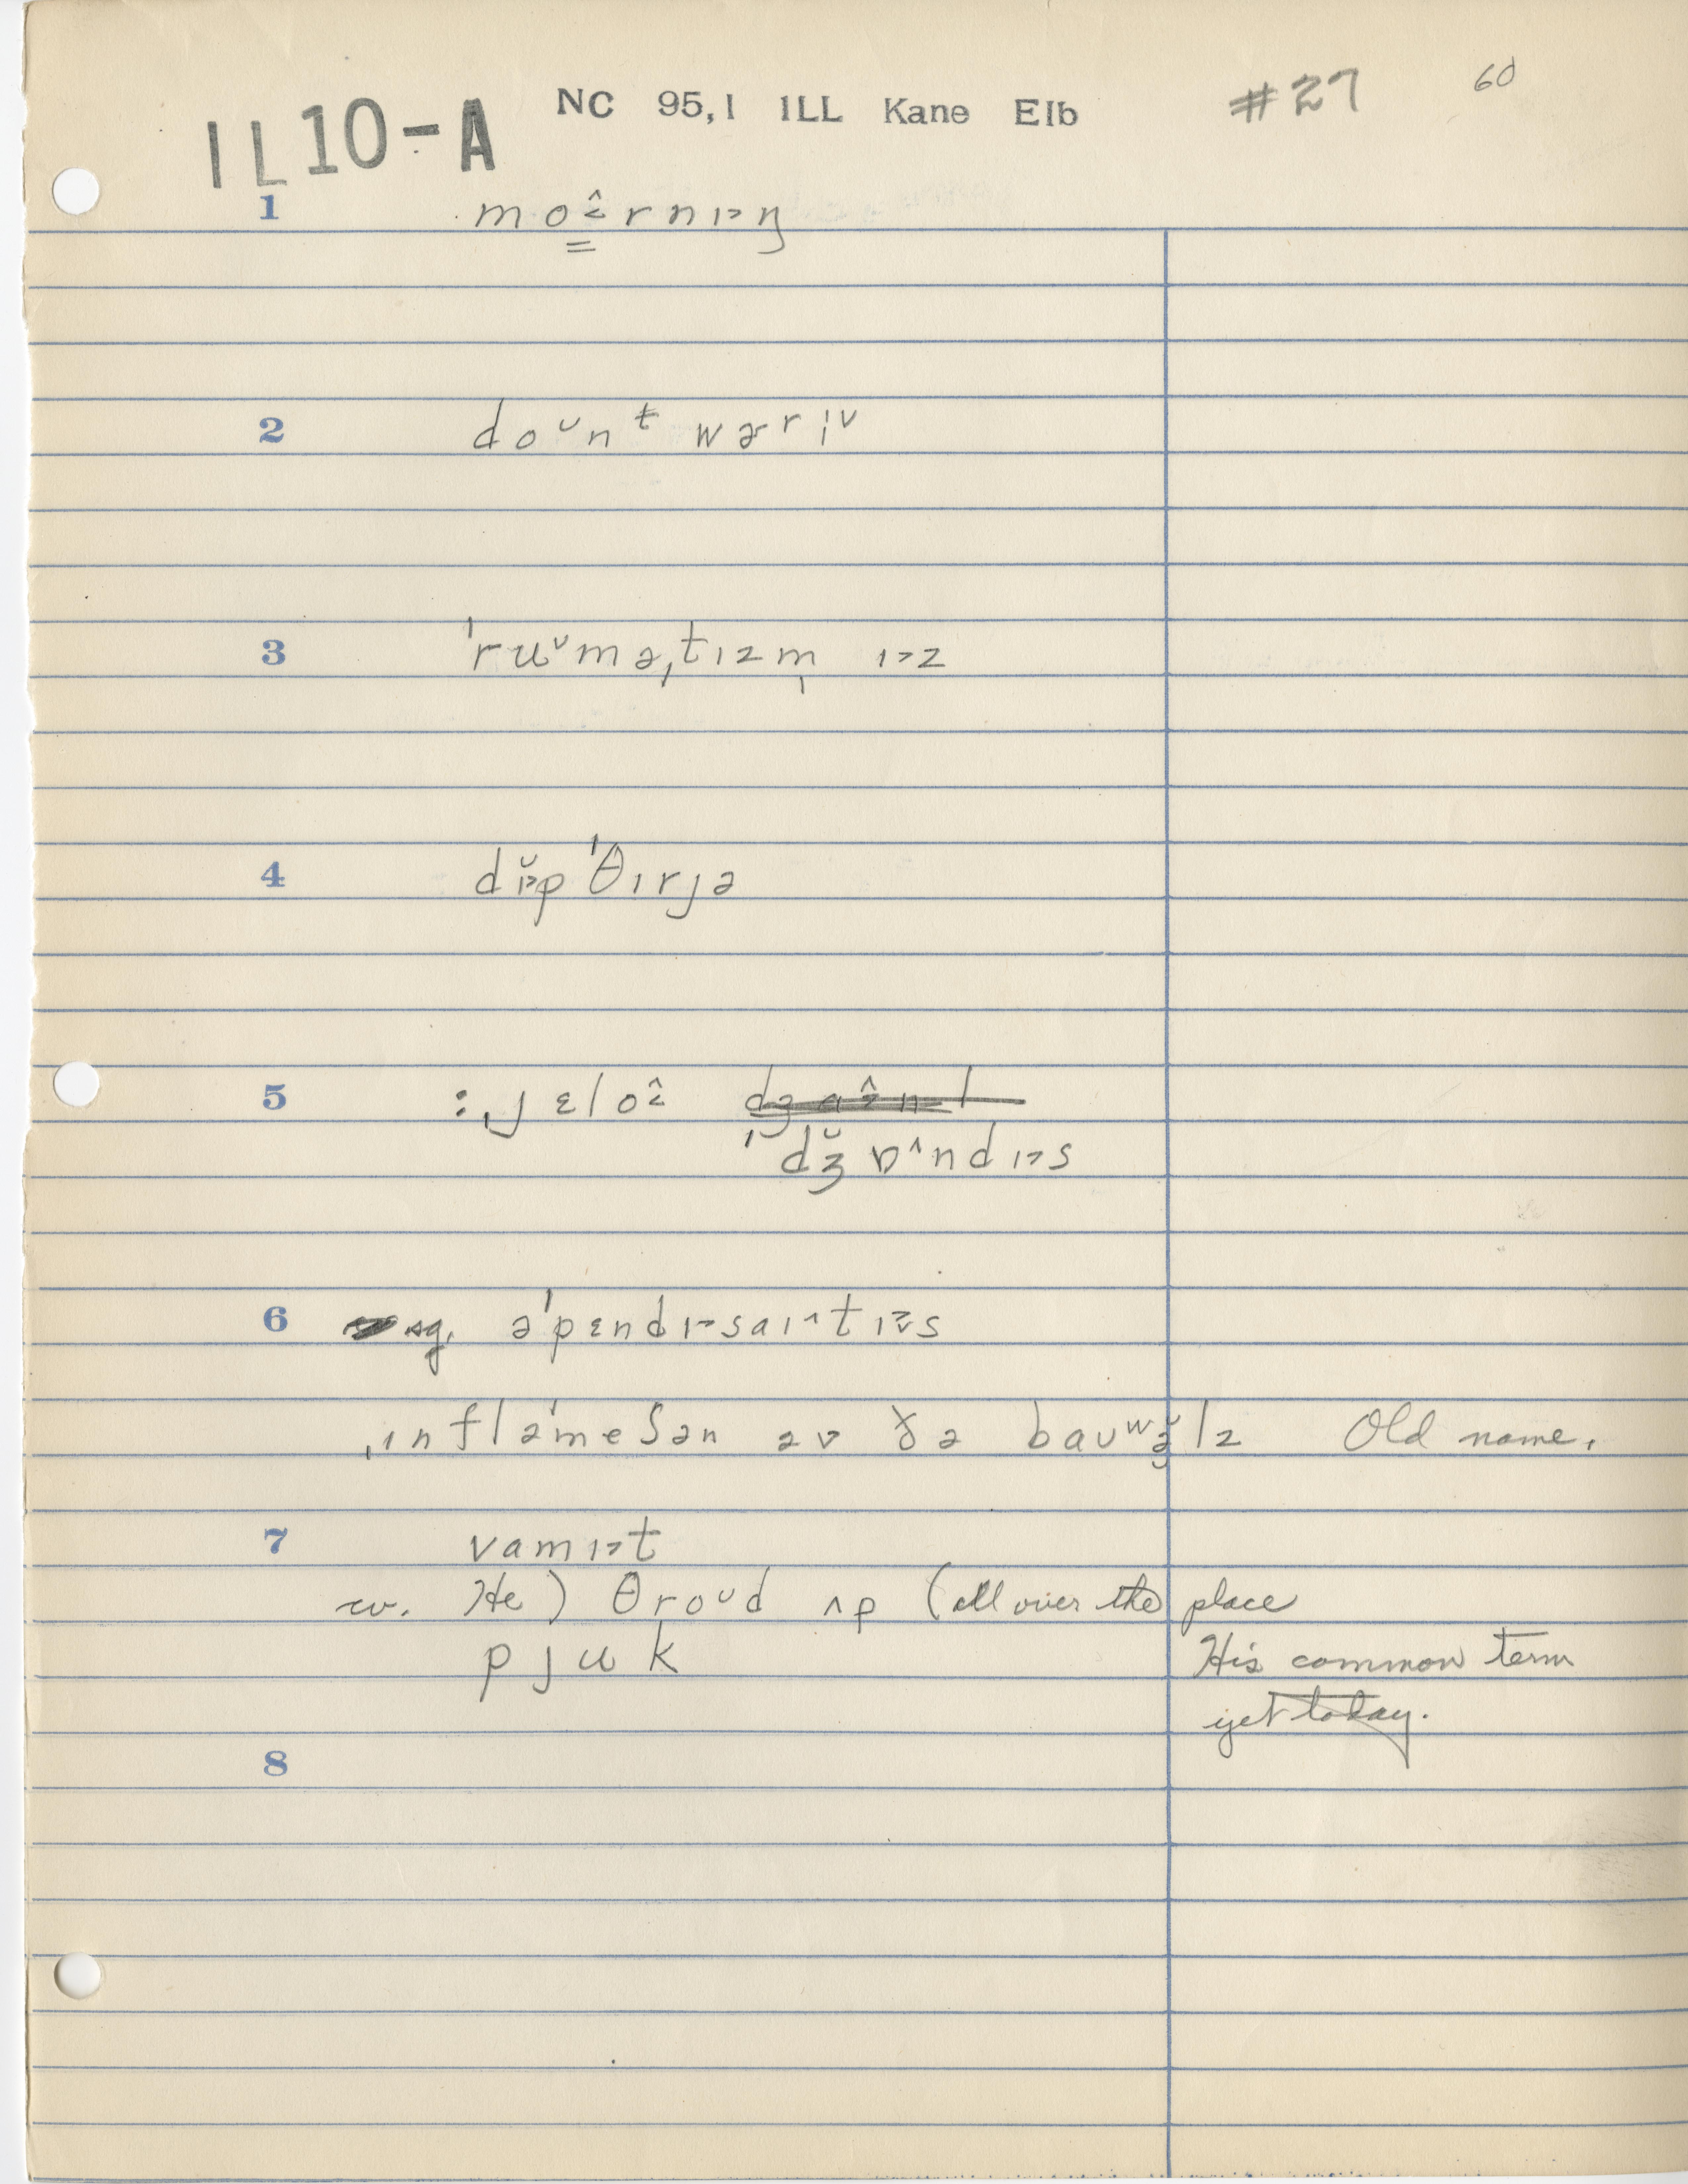 IL10-A NC 95,1 ILL Kane Elb #27 60
1 moə̂rnɪ˃ŋ
2 doᴗnᵗ wɚrɨᵛ
3 ˈruᵛməˌtɪzm̩ ɪ˃z
4 dɪ̆˃pˈθɪrjə
5 :ˌjɛloə̂
ˈdʒ̆ɒ^ndɪ˃s
6 sg. əˈpɛndɪ˃saɪ^tɪ˃s
ˌɪnfləˈmeʃən əv ðə baʊʷə̆lz Old name.
7 vamɪ˃t
w. He) θroʊd ʌp (all over the place
pjuk His common term
yet today.
8